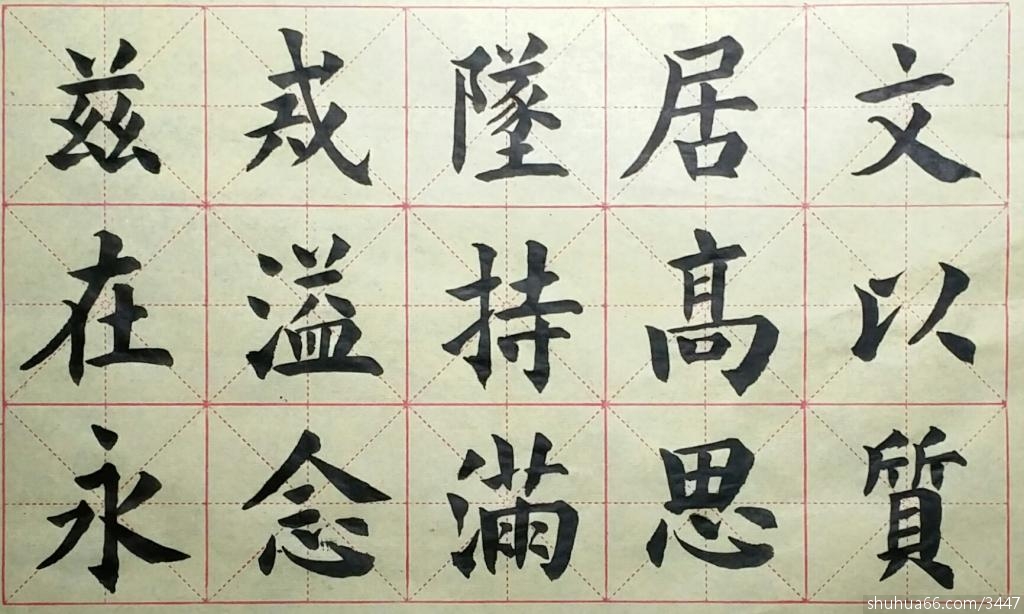 文以質
居高思
墜持滿
戒溢念
茲在永
shuhua66.com/3447